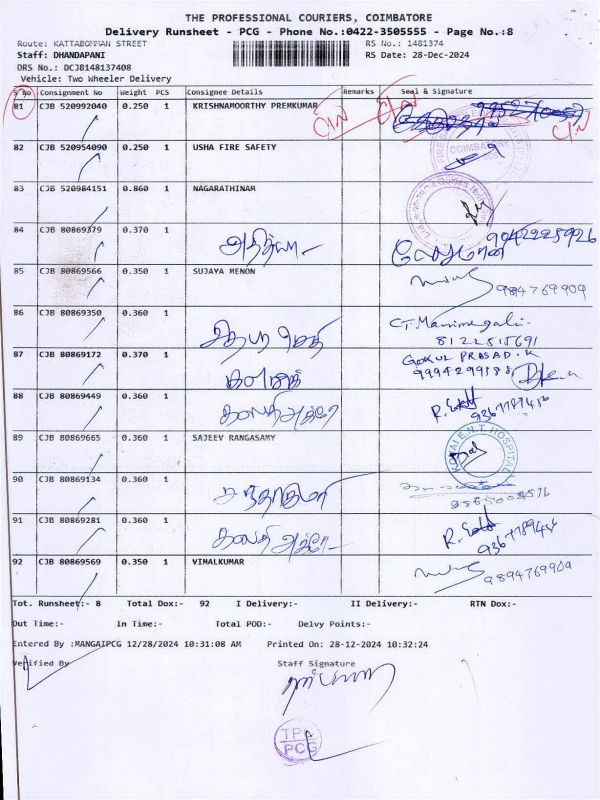 THE PROFESSIONAL COURIERS, COIMBATORE
Delivery Runsheet - PCG - Phone No.:0422-3505555 - Page No.:8
Route: KATTABOMMAN STREET RS No.: 1481374
Staff: DHANDAPANI RS Date: 28-Dec-2024
DRS No.: DCJB148137408
Vehicle: Two Wheeler Delivery
S No Consignment No Weight PCS Consignee Details Remarks Seal & Signature
81 CJB 520992040 0.250 1 KRISHNAMOORTHY PREMKUMAR
82 CJB 520954090 0.250 1 USHA FIRE SAFETY COIMBATORE
83 CJB 520984151 0.860 1 NAGARATHINAM
84 CJB 80869379 0.370 1 9042225926
85 CJB 80869566 0.350 1 SUJAYA MENON 9894769909
86 CJB 80869350 0.360 1 C.T. Manimegalai
8122515691
87 CJB 80869172 0.370 1 GOKUL PRASAD.K
9994299588
88 CJB 80869449 0.360 1
89 CJB 80869665 0.360 1 SAJEEV RANGASAMY KOVAI E.N.T. HOSPITAL
90 CJB 80869134 0.360 1
91 CJB 80869281 0.360 1
92 CJB 80869569 0.350 1 VIMALKUMAR 9894769909
Tot. Runsheet:- 8 Total Dox:- 92 I Delivery:- II Delivery:- RTN Dox:-
Out Time:- In Time:- Total POD:- Delvy Points:-
Entered By :MANGAIPCG 12/28/2024 10:31:08 AM Printed On: 28-12-2024 10:32:24
Verified By Staff Signature
TPC
PCG